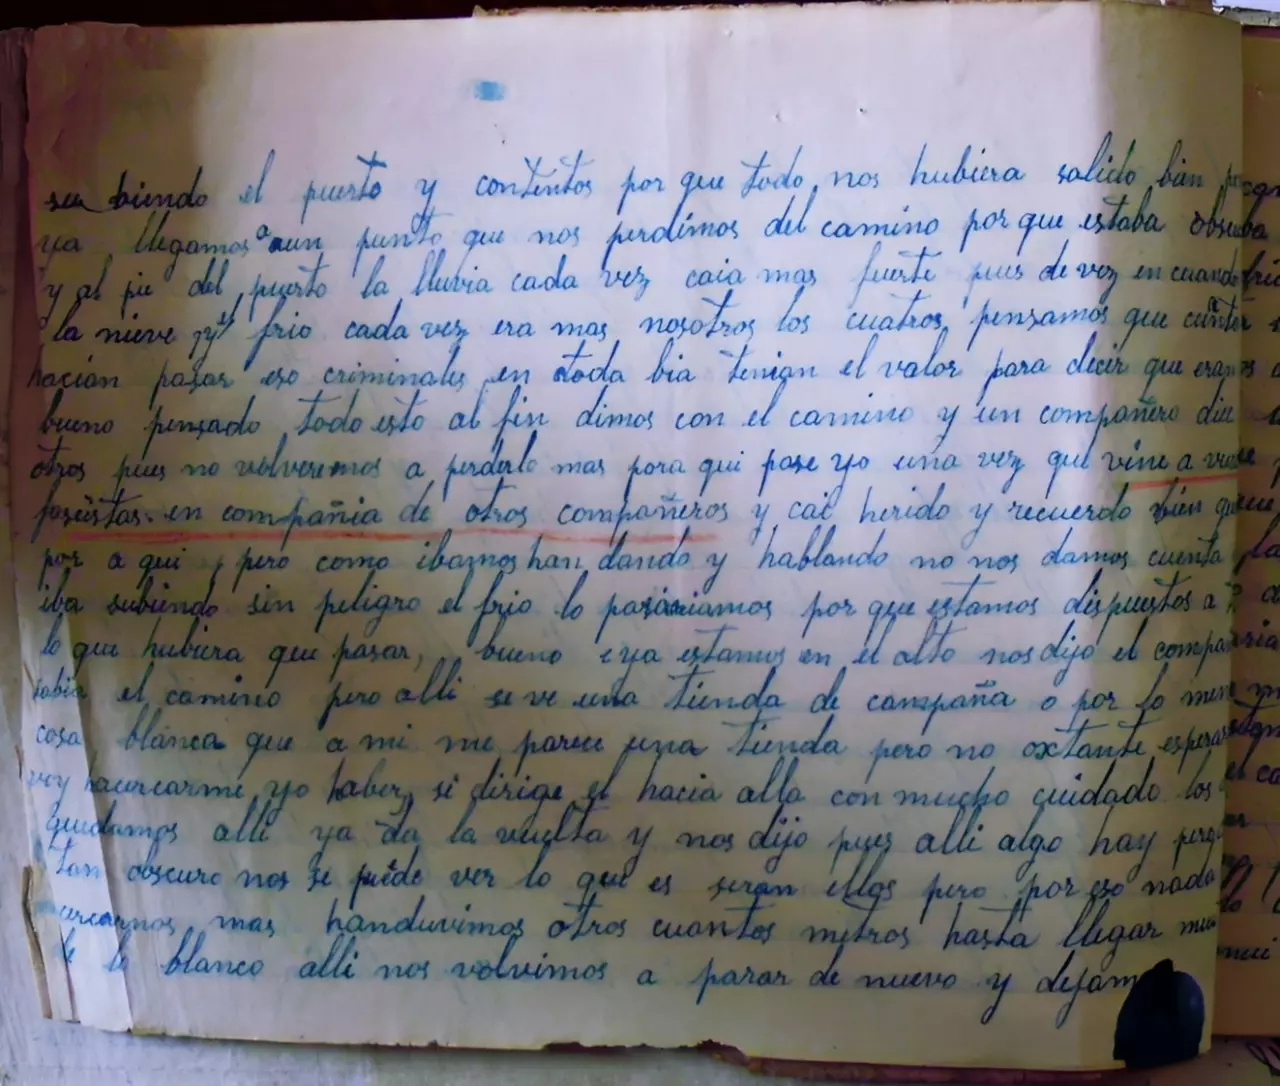 su biendo el puerto y contentos por que todo nos hubiera salido bien
ya llegamos a aun punto que nos perdimos del camino por que estaba
y al pie del puerto la lluvia cada vez caia mas fuerte pues de vez en cuando
la nieve y el frio cada vez era mas nosotros los cuatros pensamos que
hacian pasar eso criminales en toda bia tenian el valor para decir que eramos
bueno pensado todo esto al fin dimos con el camino y un compañero
otros pues no volveremos a perderlo mas pora qui pase yo una vez que vine a
en compañia de otros compañeros y cai herido y recuerdo bien que
por a qui, pero como ibamos han dando y hablando no nos damos cuenta
iba subiendo sin peligro el frio lo por que estamos dispuestos a
lo que hubiera que pasar, bueno ya estamos en el alto nos dijo el
sabia el camino pero alli se ve una tienda de campaña o por lo
cosa blanca que a mi me parece una tienda pero no oxtante
voy hacercarme yo haber, si dirige el hacia alla con mucho cuidado los
quedamos alli ya da la vuelta y nos dijo pues alli algo hay
tan obscuro nos se puede ver lo que es seran ellos pero por eso nada
mas handuvimos otros cuantos metros hasta llegar
lo blanco alli nos volvimos a parar de nuevo y